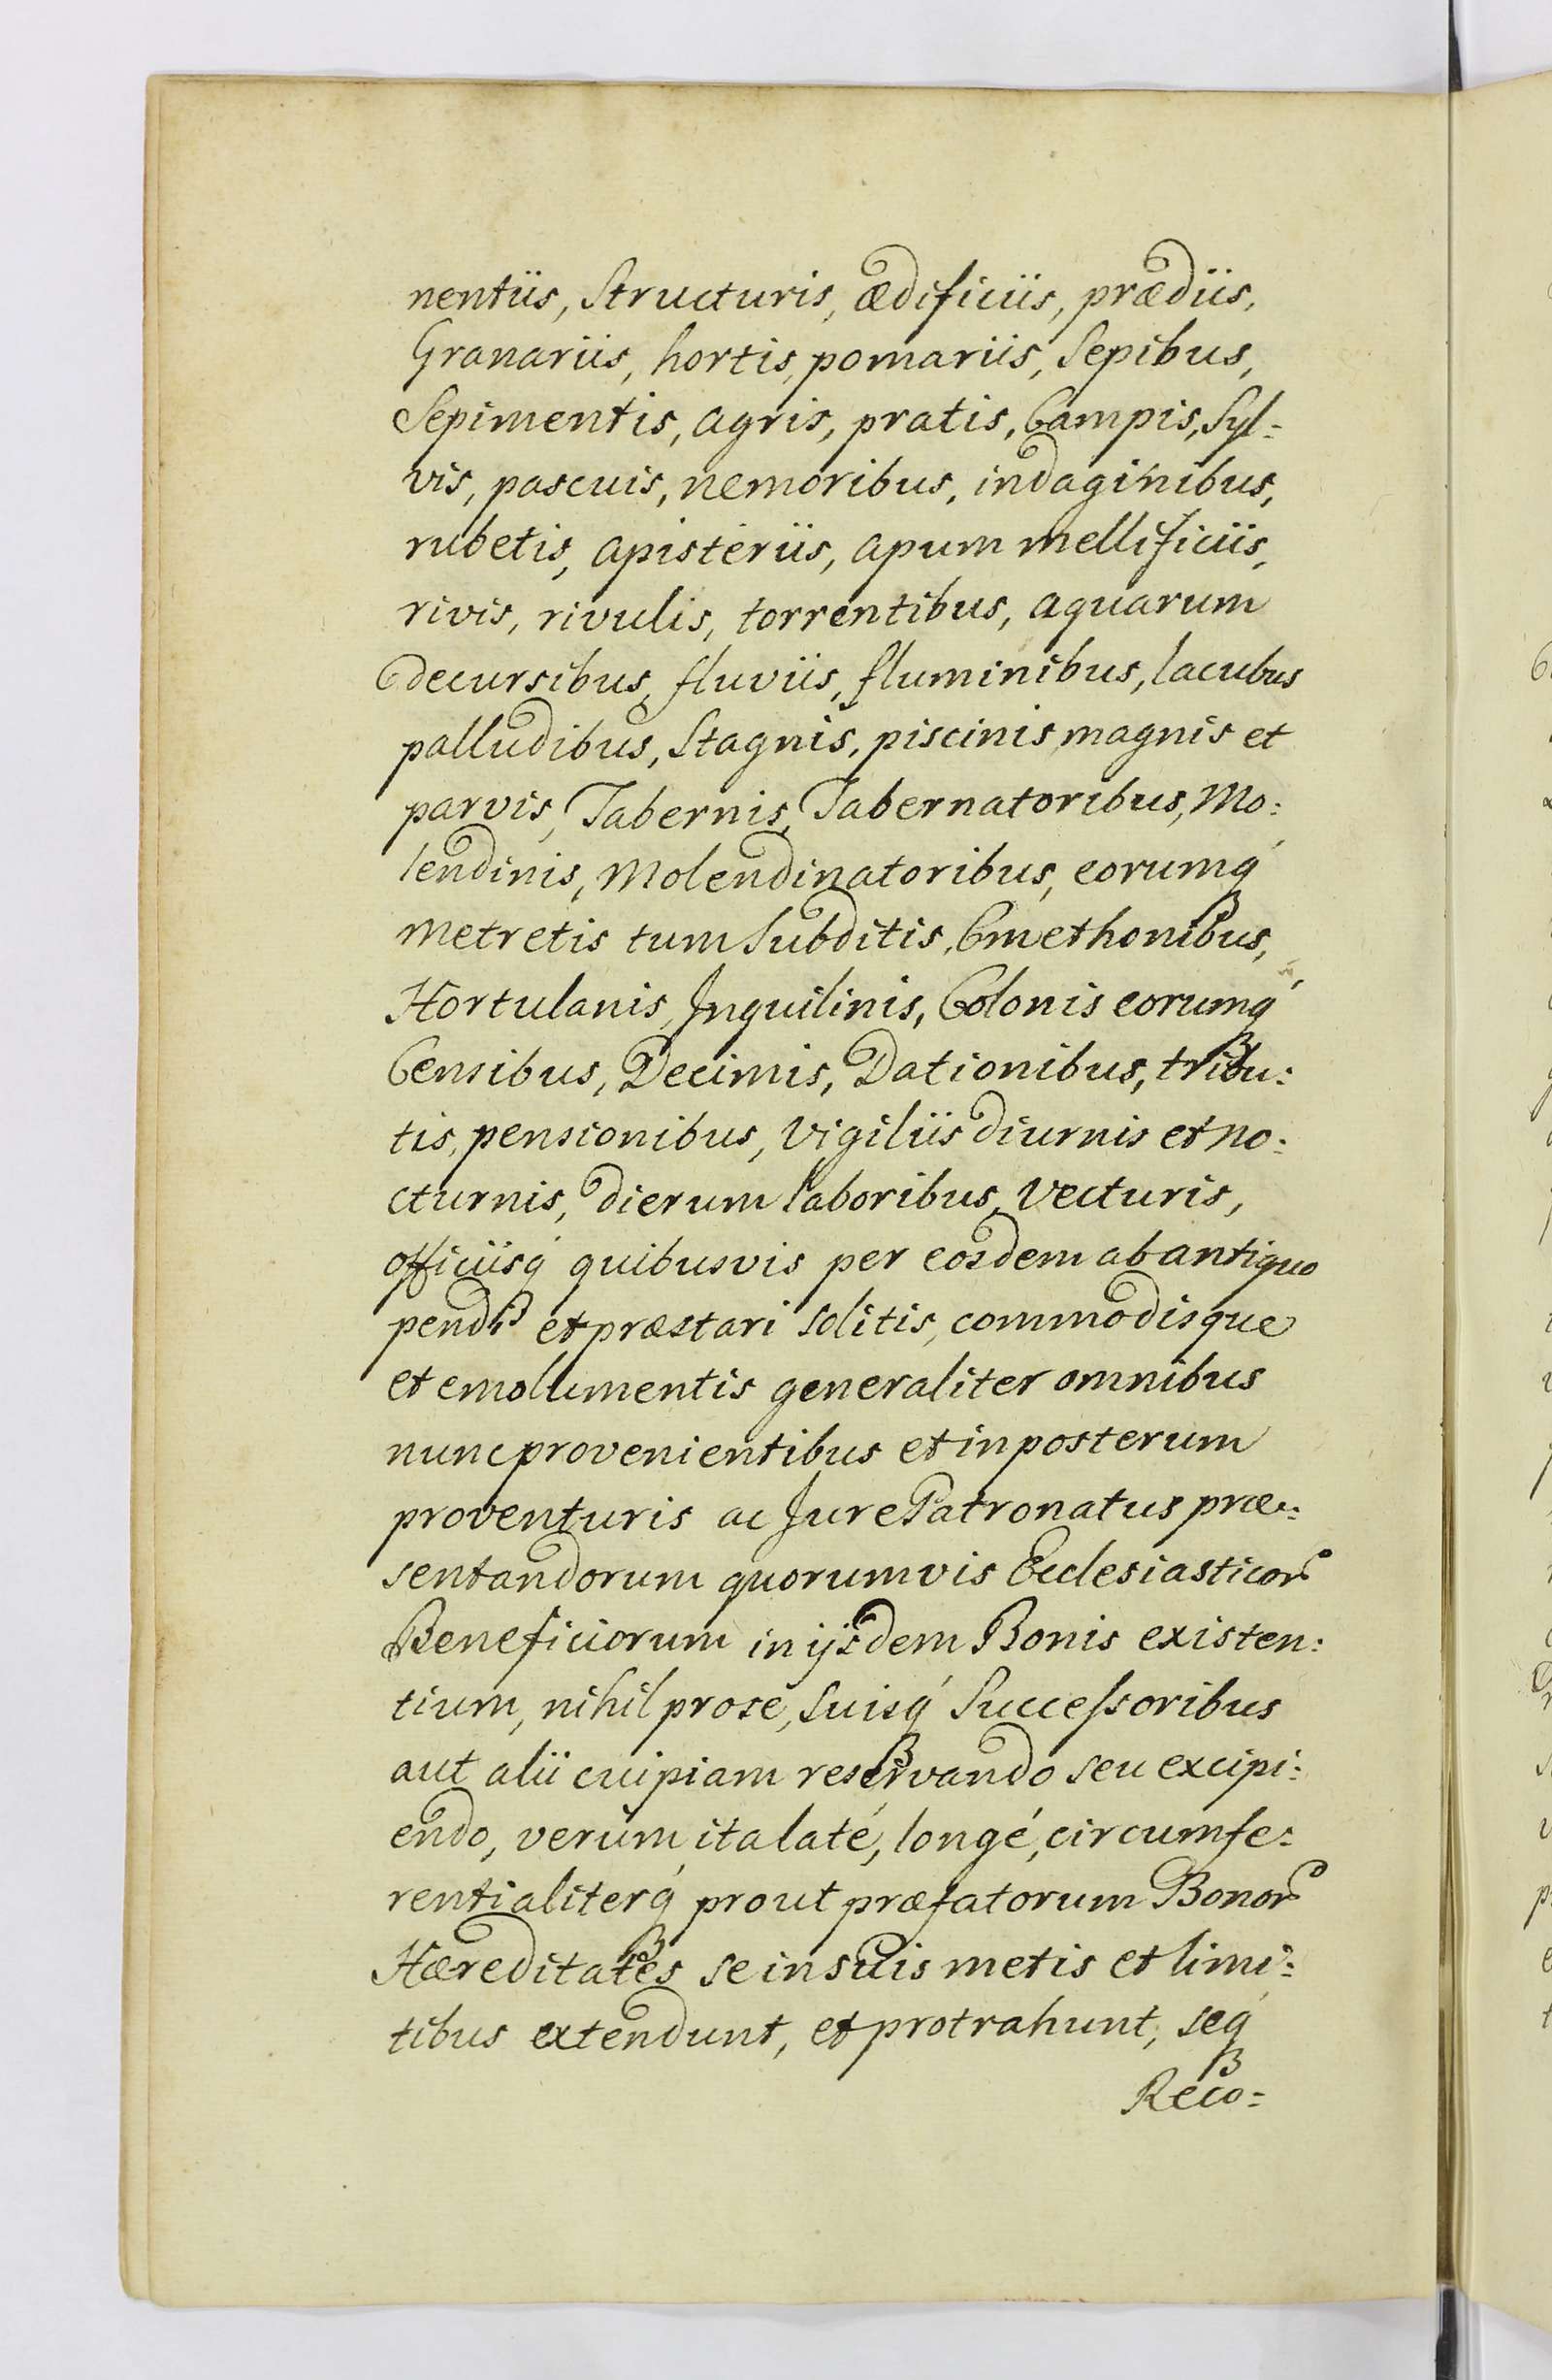 nentiis, Structuris, ædificiis, prædiis,
Granariis, hortis, pomariis, Sepibus,
Sepimentis, agris, pratis, Campis, Syl=
vis, pascuis, nemoribus, indaginibus,
rubetis, apisteriis, apum mellificiis,
rivis, rivulis, torrentibus, aquarum
decursibus, fluviis, fluminibus, lacubus
palludibus, Stagnis, piscinis magnis et
parvis, Tabernis, Tabernatoribus, Mo:
lendinis, Molendinatoribus, eorumq́
metretis tum Subditis, Cmethonibus,
Hortulanis, Inquilinis, Colonis eorumq́
Censibus, Decimis, Dationibus, tribu:
tis, pensionibus, Vigiliis diurnis et no:
cturnis, dierum laboribus, Vecturis,
officiisq́ quibusvis per eosdem ab antiquo
pendi et præstari solitis, commodisque
et emolumentis generaliter omnibus
nunc provenientibus et in posterum
proventuris ac Jure Patronatus præ:
sentandorum quorumvis Ecclesiasticor
Beneficiorum in ijsdem Bonis existen:
tium, nihil pro se, Suisq́ Successoribus
aut alii cuipiam reservando seu excipi:
endo, verum ita laté, longé, circumfe:
rentialiterq́ prout præfatorum Bonor
Hæreditates se in suis metis et limi:
tibus extendunt, et protrahunt, seq́
Reco=